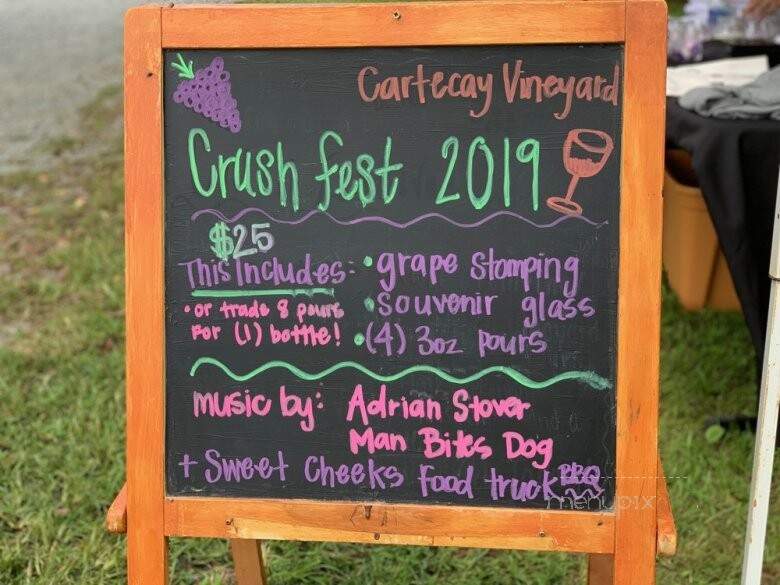 Cartecay Vineyard
Crush fest 2019
$25
This Includes:
• grape stomping
• souvenir glass
• (4) 3oz pours
• or trade 8 pours
for (1) bottle!
music by: Adrian Stover
Man Bites Dog
+ Sweet Cheeks food truck BBQ
menupix